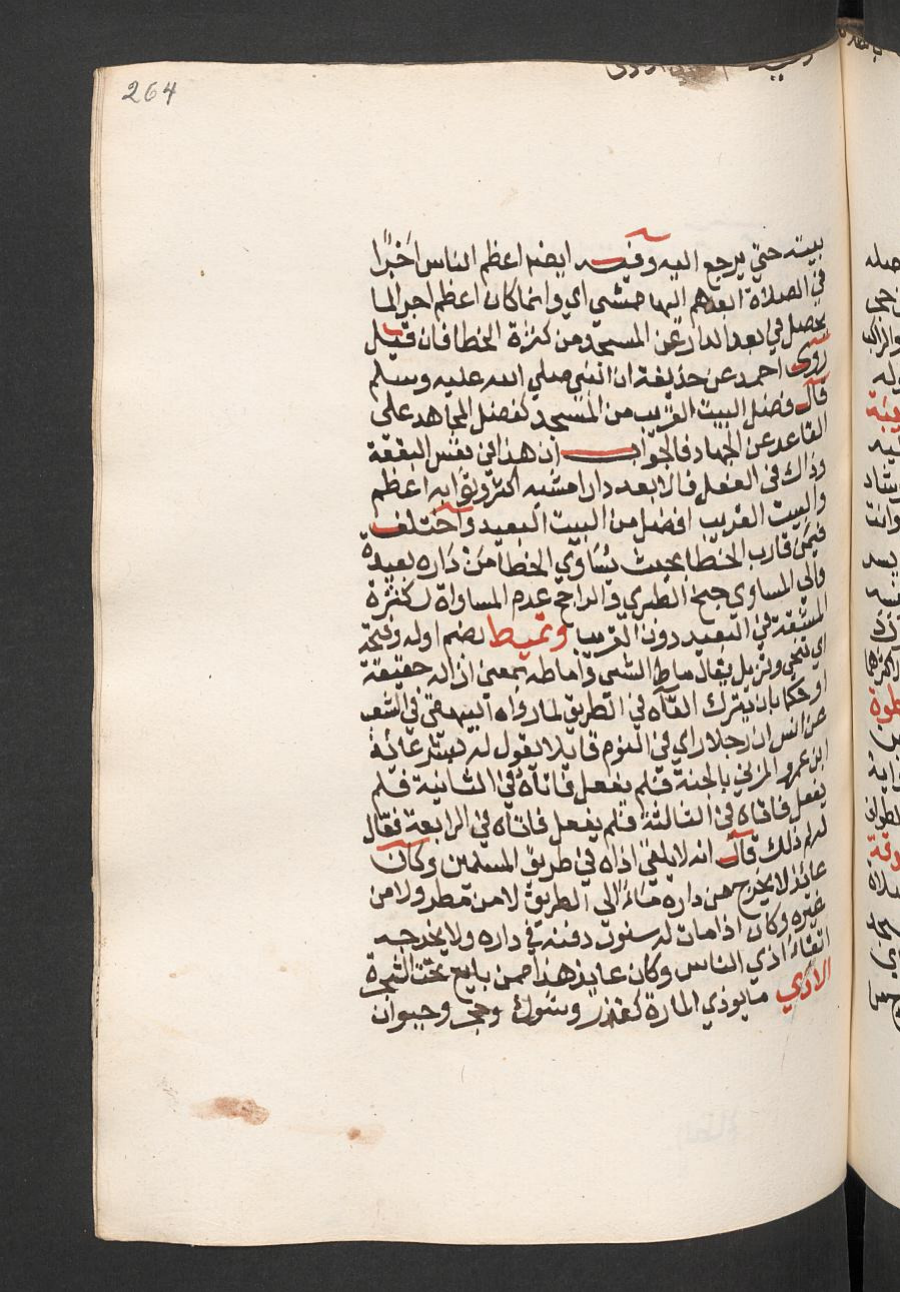 264
بيته حتي يرجع اليه وفيه ايضا اعظم الناس اجرا
في الصلاة ابعدهم اليها ممشي اي وانما كان اعظم اجرا لما
يحصل في بعد الدار عن المسجد من كثرة الخطا فان قيل
روى احمد عن حذيفة ان النبي صلي الله عليه وسلم
قال فضل البيت القريب من المسجد كفضل المجاهد على
القاعد عن الجهاد فالجواب ان هذا في نفس البقعة
وذاك في الفعل فالابعد دارا مشيه اكثر وثوابه اعظم
والبيت القريب افضل من البيت البعيد واختلف
فيمن قارب الخطا بحيث تساوي الخطا من داره بعيدة
والى المساوي جنح الطبري والراجح عدم المساواة لكثرة
المشقة في البعيد دون القريب وتميط بضم اوله وفتحه
اي تنحي وتزيل يقال ماط الشي واماطه بمعنى ازاله حقيقة
او حكما بان يترك القاه في الطريق لما رواه البيهقي في الشعب
عن انس ان رجلا راي في النوم قايلا يقول له بشر عائذ
ابن عمرو المزني بالجنة فلم يفعل فاتاه في الثانية فلم
يفعل فاتاه في الثالثة فلم يفعل فاتاه في الرابعة فقال
له لم ذلك قال انه لا يلقي اذاه في طريق المسلمين وكان
عائذ لا يخرج من داره ماء الى الطريق لا من مطر ولا من
غيره وكان اذا مات له سنور دفنه في داره ولا يخرجه
اتقاء اذي الناس وكان عايذ هذا ممن بايع تحت الشجرة
الاذي ما يوذي المارة كقذر وشوك وحجر وحيوان